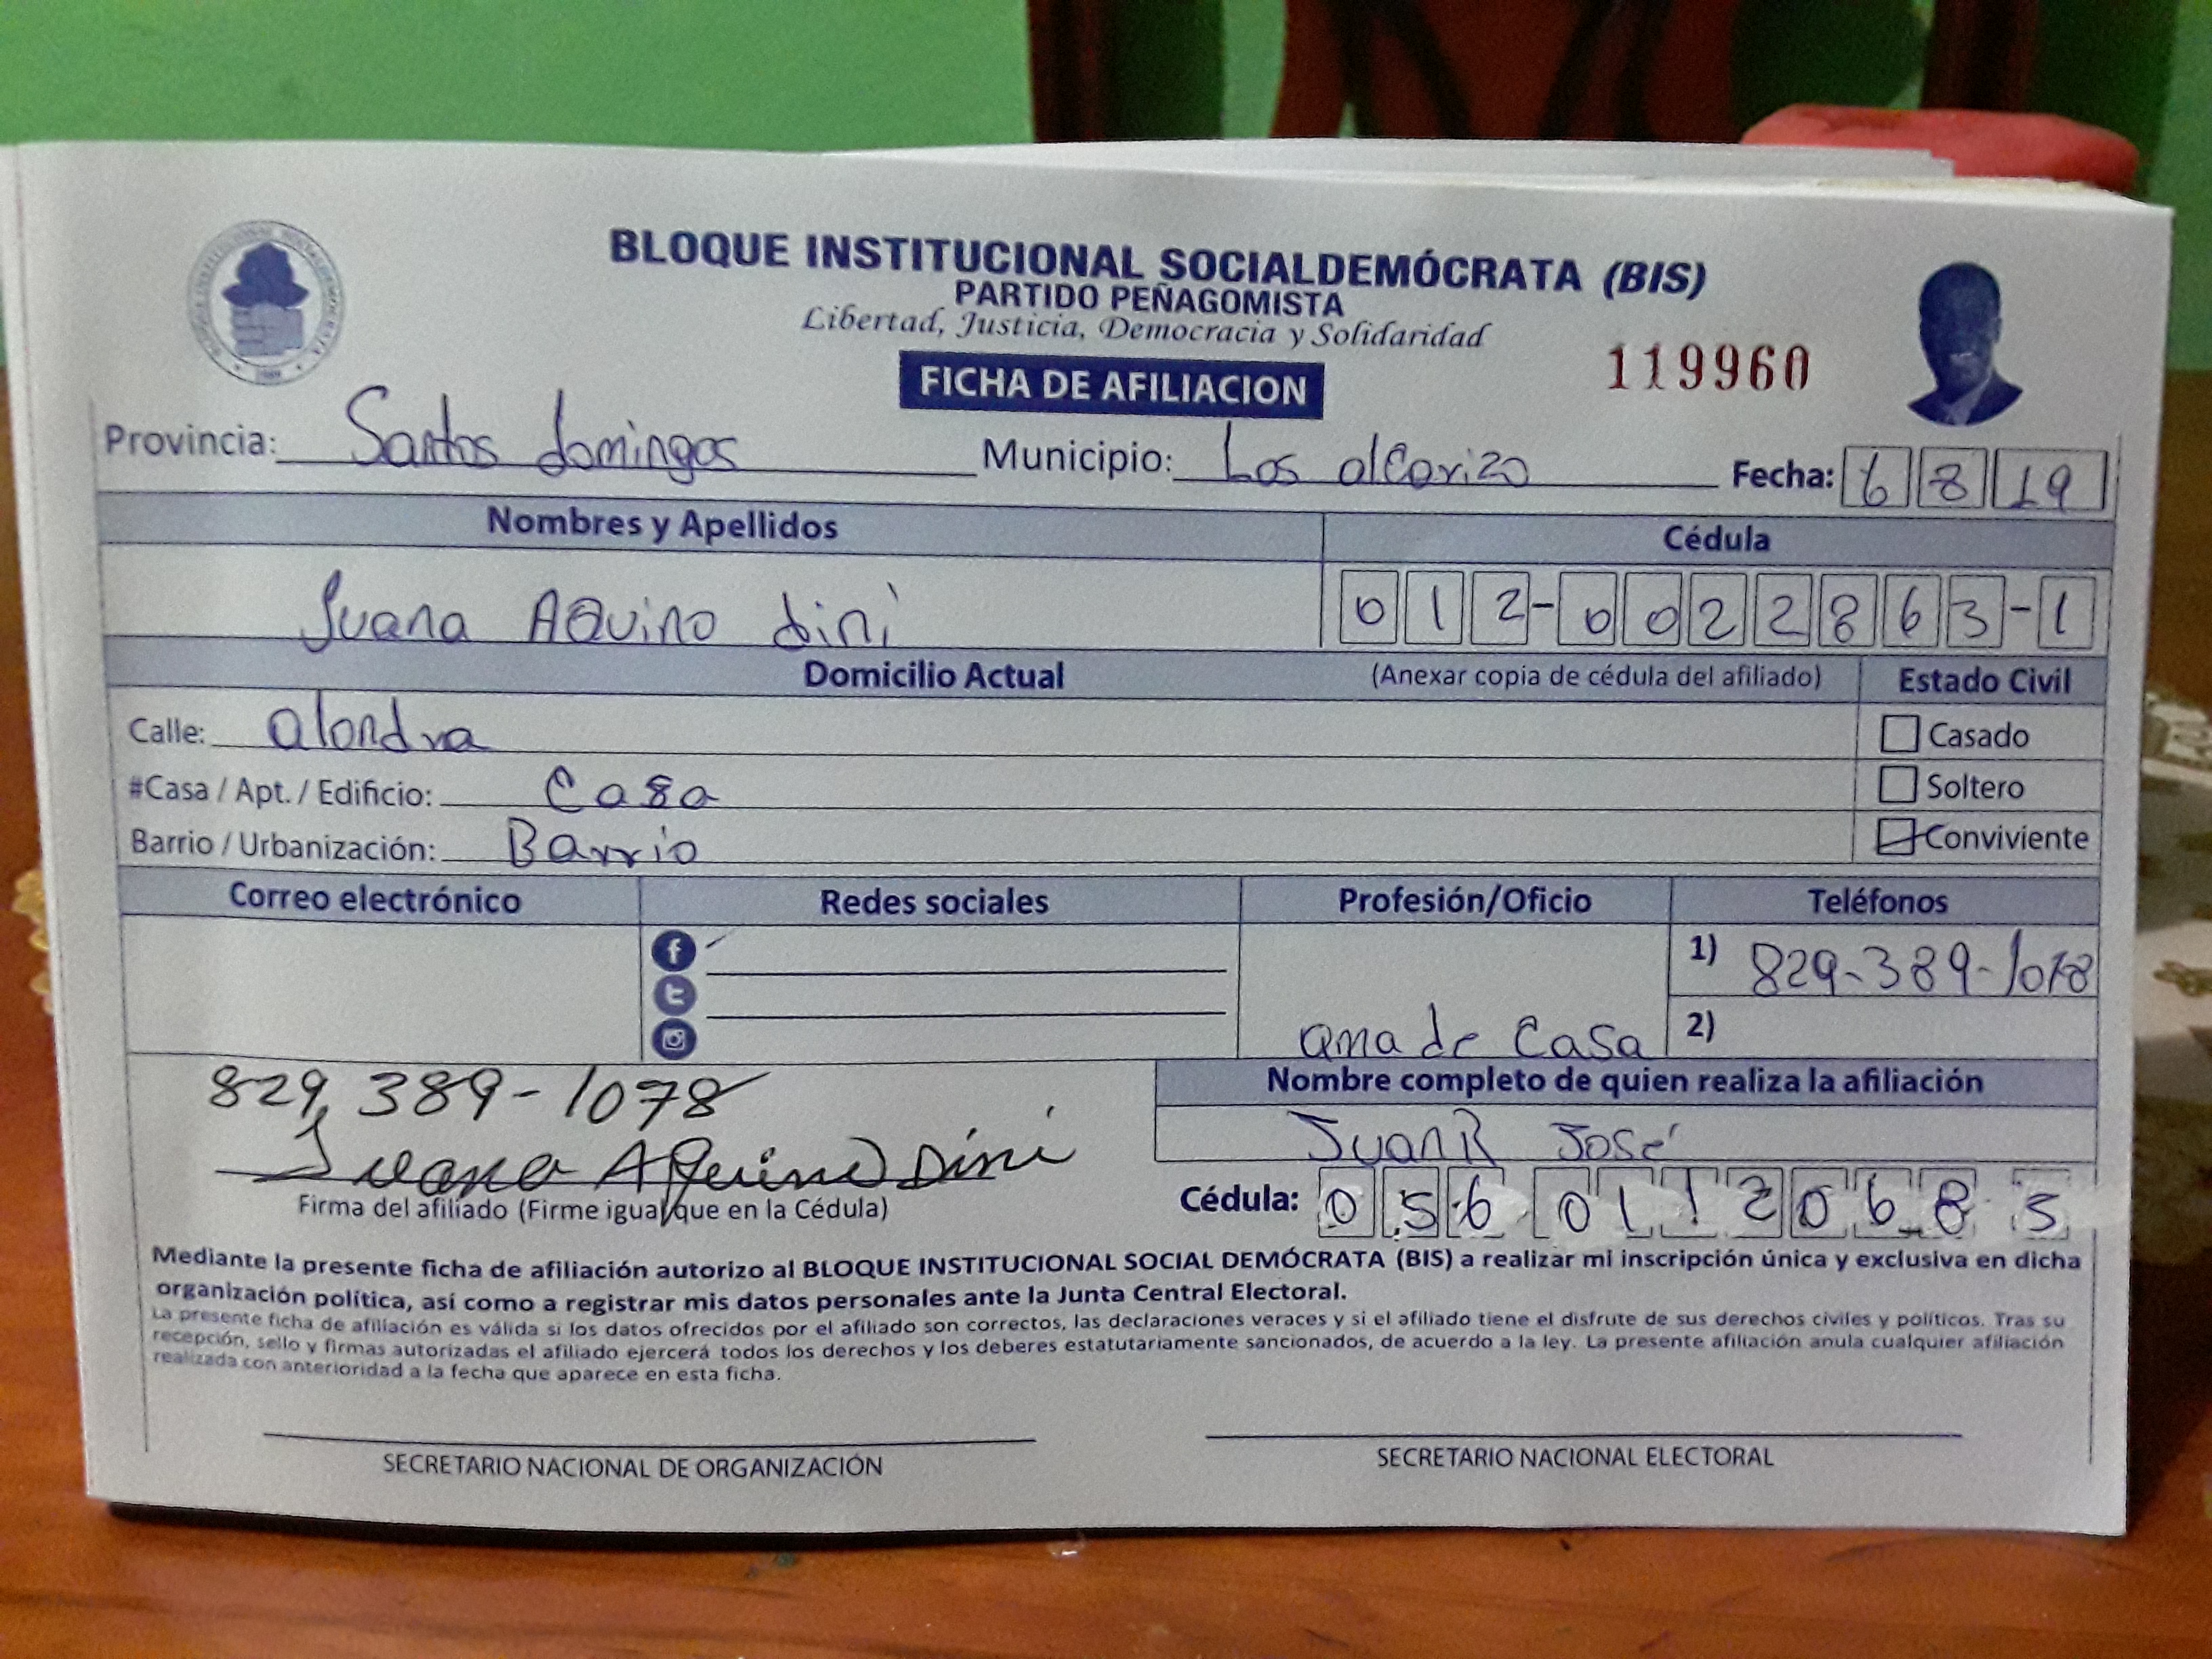 BLOQUE INSTITUCIONAL SOCIALDEMÓCRATA (BIS)
PARTIDO PEÑAGOMISTA
Libertad, Justicia, Democracia y Solidaridad
FICHA DE AFILIACION
119960
Provincia: Santos domingos Municipio: Los alcarizo Fecha: 6 8 19
Nombres y Apellidos Cédula
Juana AQuino dini 012-0022863-1
Domicilio Actual (Anexar copia de cédula del afiliado) Estado Civil
Calle: alondra Casado
#Casa / Apt. / Edificio: Casa Soltero
Barrio / Urbanización: Barrio Conviviente
Correo electrónico Redes sociales Profesión/Oficio Teléfonos
1) 829-389-1078
ama de Casa 2)
829, 389-1078
Nombre completo de quien realiza la afiliación
Juana Aquino Dini
JuanR José
Firma del afiliado (Firme igual que en la Cédula)
Cédula: 056 0112068 5
Mediante la presente ficha de afiliación autorizo al BLOQUE INSTITUCIONAL SOCIAL DEMÓCRATA (BIS) a realizar mi inscripción única y exclusiva en dicha
organización política, así como a registrar mis datos personales ante la Junta Central Electoral.
La presente ficha de afiliación es válida si los datos ofrecidos por el afiliado son correctos, las declaraciones veraces y si el afiliado tiene el disfrute de sus derechos civiles y políticos. Tras su
recepción, sello y firmas autorizadas el afiliado ejercerá todos los derechos y los deberes estatutariamente sancionados, de acuerdo a la ley. La presente afiliación anula cualquier afiliación
realizada con anterioridad a la fecha que aparece en esta ficha.
SECRETARIO NACIONAL DE ORGANIZACIÓN SECRETARIO NACIONAL ELECTORAL